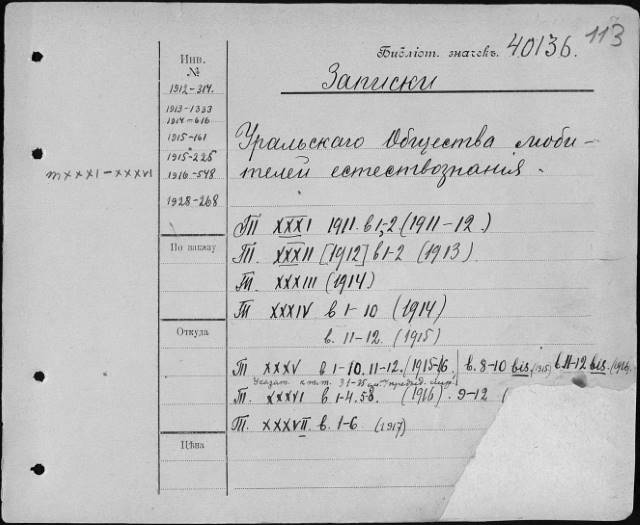 113
Библіот. значекъ. 40136.
Записки
Инв.
№
1912-314.
1913-1333
1914-616
1915-161
1915-225
1916-548
1928-268
тXXXI-XXXVI
Уральскаго Общества люби-
телей естествознанія.
Т XXXI 1911. в 1,-2 (1911-12.)
Т. XXXII [1912] в 1-2 (1913).
Т. XXXIII (1914)
Т XXXIV в 1-10 (1914)
в. 11-12. (1915)
Т XXXV в 1-10, 11-12. (1915-16) в. 8-10 bis (1915) в. 11-12 bis. (1916)
Указат. к т.т. 31-35
Т. XXXVI в 1-4. 5-8. (1916) 9-12 (
Т. XXXVII. в. 1-6 (1917)
По заказу
Откуда
Цѣна